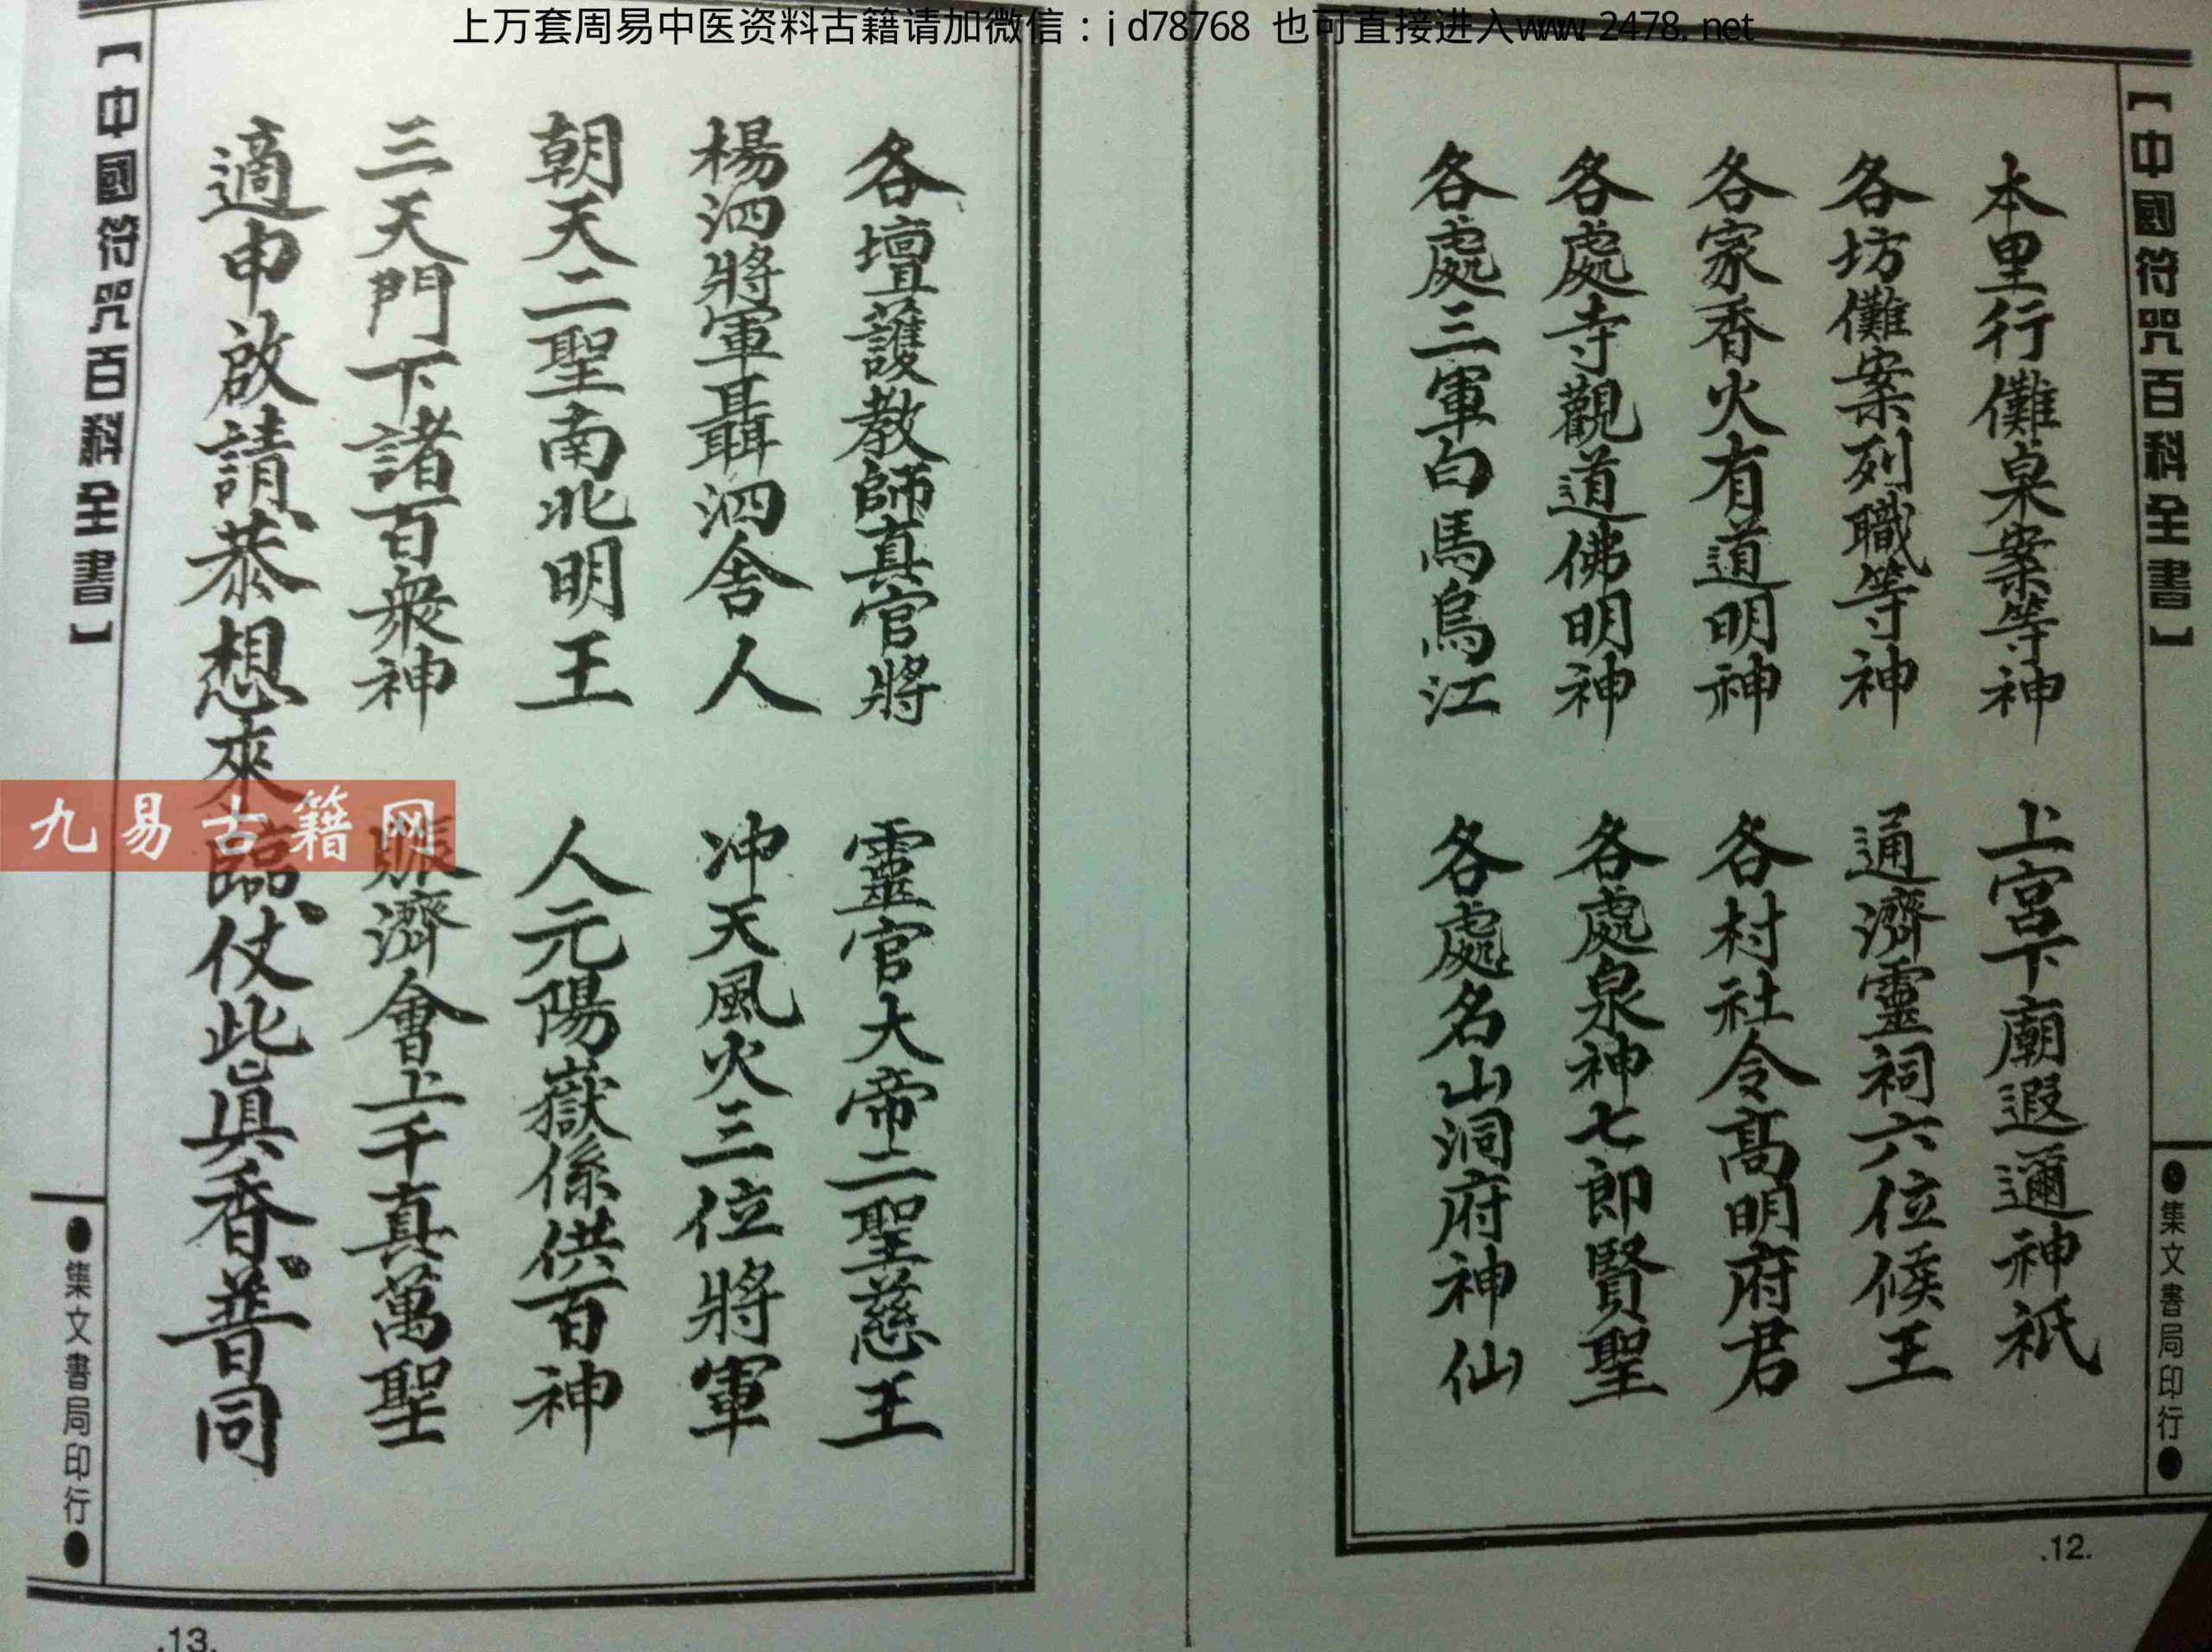 上万套周易中医资料古籍请加微信：jd78768 也可直接进入www.2478.net
【中國符咒百科全書】
本里行儺泉案等神 上宮下廟遐邇神祇
各坊儺案列職等神 通濟靈祠六位候王
各家香火有道明神 各村社令高明府君
各處寺觀道佛明神 各處泉神七郎賢聖
各處三軍白馬烏江 各處名山洞府神仙
●集文書局印行●
.12.
各壇護教師真官將 靈官大帝二聖慈王
楊泗將軍聶泗舍人 冲天風火三位將軍
朝天二聖南北明王 人元陽嶽係供百神
三天門下諸百衆神 賑濟會上千真萬聖
適申啟請恭想來臨仗此真香普同
【中國符咒百科全書】
●集文書局印行●
.13.
九易古籍网